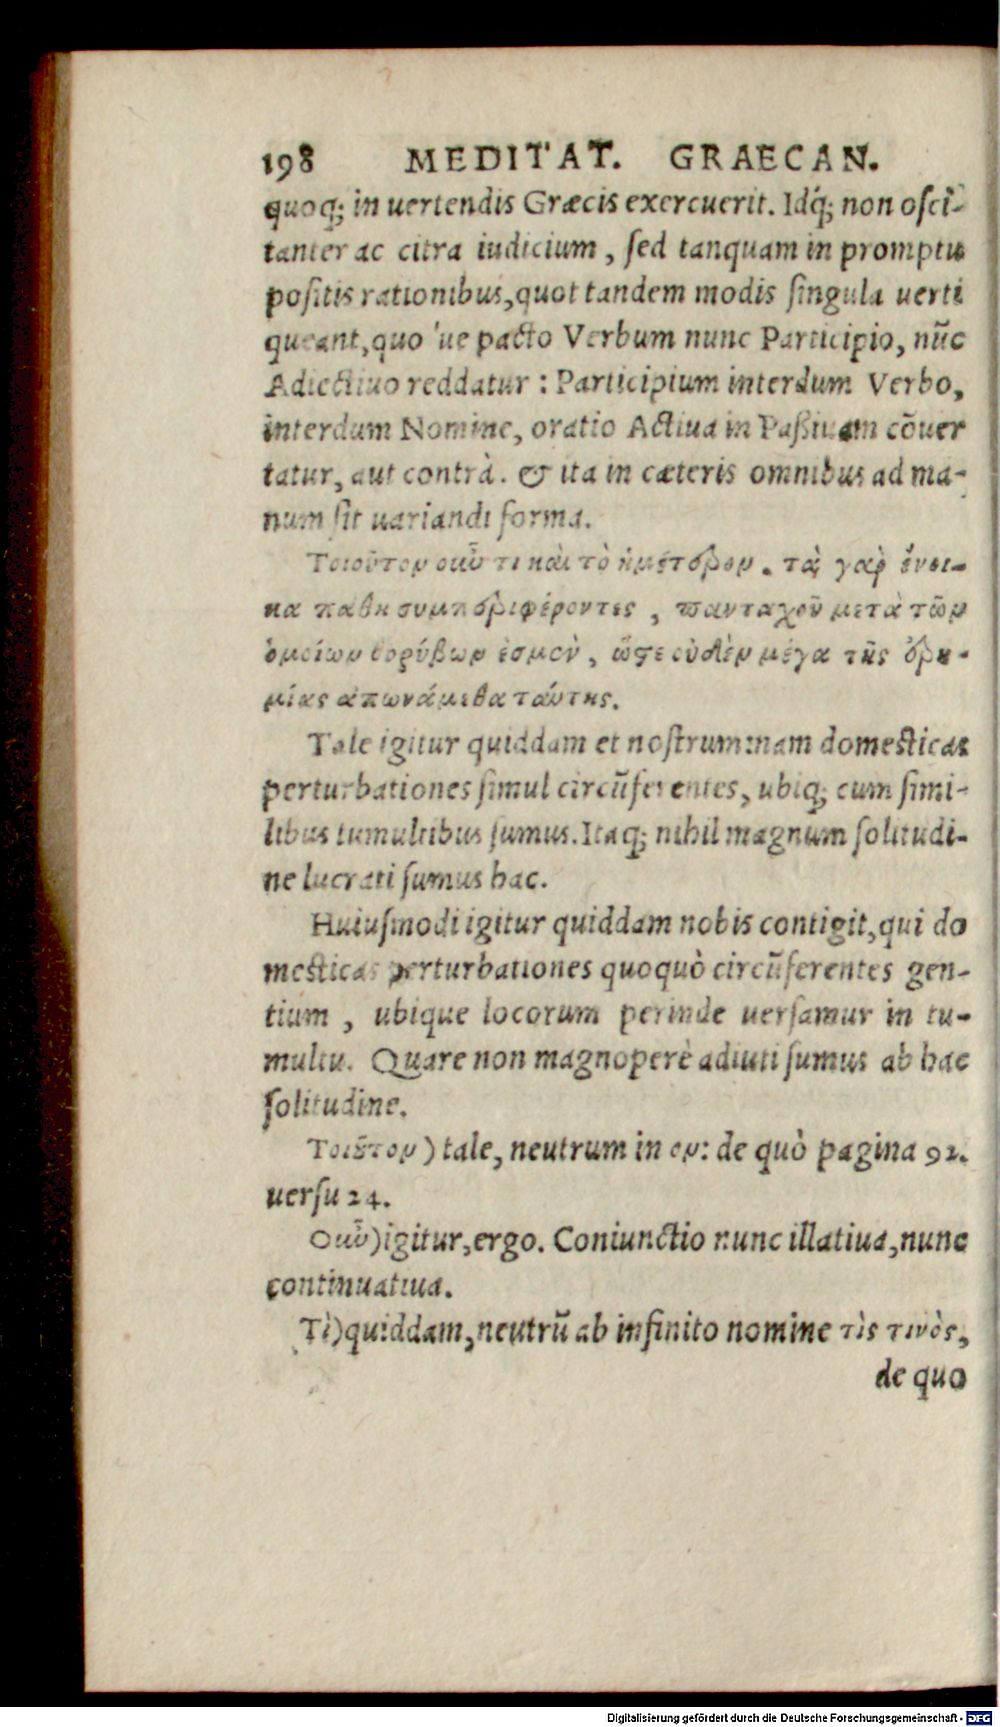 198 MEDITAT. GRAECAN.
quoq; in uertendis Græcis exercuerit. Idq́; non osci-
tanter ac citra iudicium, sed tanquam in promptu
positis rationibus, quot tandem modis singula uerti
queant, quo 'ue pacto Verbum nunc Participio, nūc
Adiectiuo reddatur: Participium interdum Verbo,
interdum Nomine, oratio Actiua in Paßiuam cōuer
tatur, aut contrà. & ita in cæteris omnibus ad ma-
num sit uariandi forma.
Τοιοῦτον οὖν τι καὶ τὸ ἡμέτερον. τὰ γὰρ ἔνοι-
κα πάθη συμπεριφέροντες, πανταχοῦ μετὰ τῶν
ὁμοίων θορύβων ἐσμὲν, ὥστε οὐδὲν μέγα τῆς ἐρη-
μίας ἀπωνάμεθα ταύτης.
Tale igitur quiddam et nostrum: nam domesticas
perturbationes simul circūferentes, ubiq; cum simi-
libus tumultibus sumus. Itaq; nihil magnum solitudi-
ne lucrati sumus hac.
Huiusmodi igitur quiddam nobis contigit, qui do
mesticas perturbationes quoquò circūferentes gen-
tium, ubique locorum perinde uersamur in tu-
multu. Quare non magnoperè adiuti sumus ab hac
solitudine.
Τοιȣ̃τον) tale, neutrum in ον: de quò pagina 92.
uersu 24.
Οὖν) igitur, ergo. Coniunctio nunc illatiua, nunc
continuatiua.
Τὶ) quiddam, neutrū ab infinito nomine τὶς τινὸς,
de quo
Digitalisierung gefördert durch die Deutsche Forschungsgemeinschaft - DFG